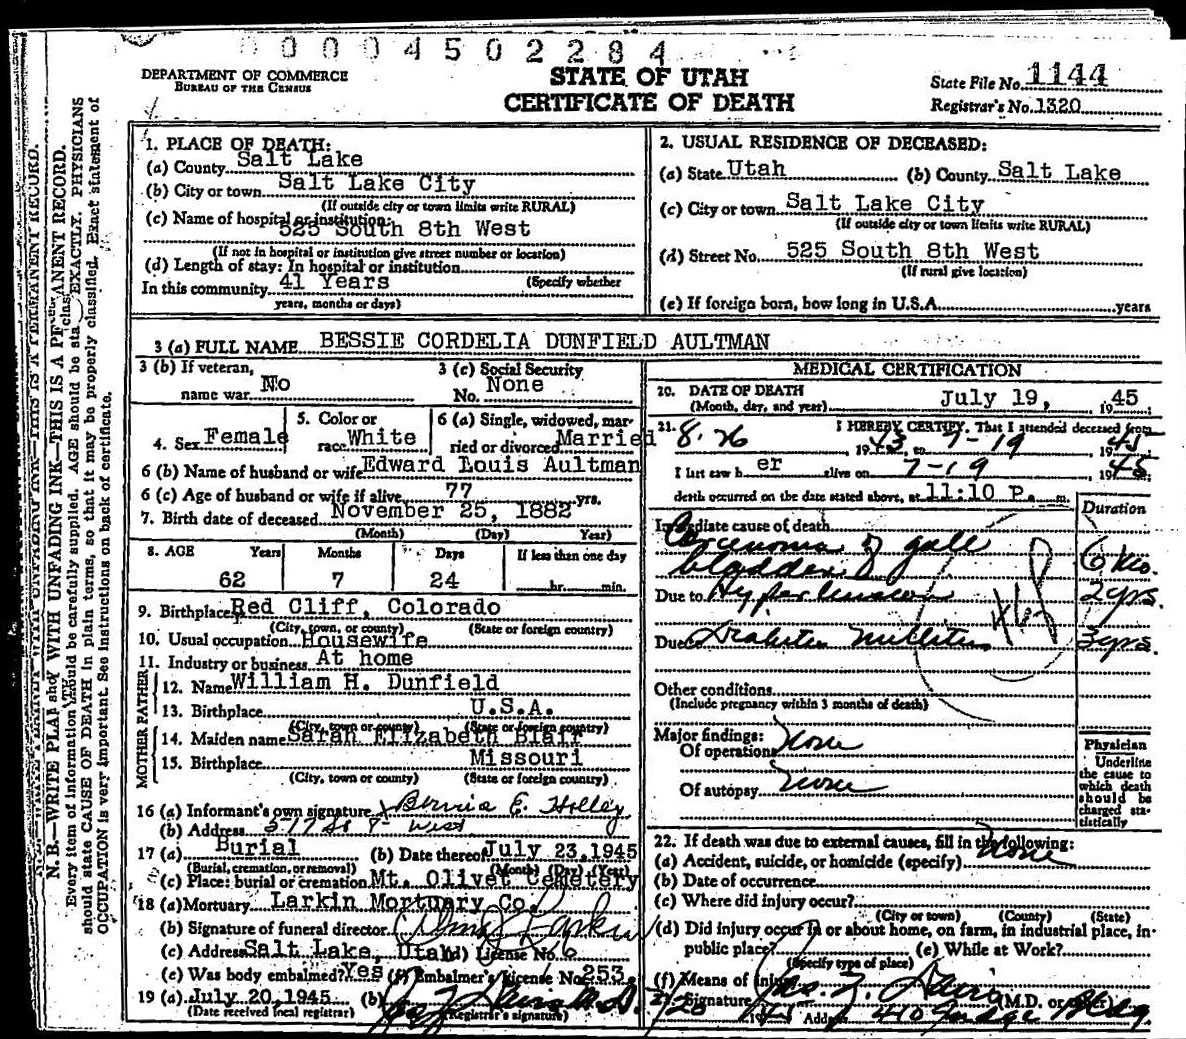 00004502284
DEPARTMENT OF COMMERCE
BUREAU OF THE CENSUS
STATE OF UTAH
CERTIFICATE OF DEATH
State File No. 1144
Registrar's No. 1320
N. B.—WRITE PLAINLY WITH UNFADING INK—THIS IS A PERMANENT RECORD.
Every item of information should be carefully supplied. AGE should be stated EXACTLY. PHYSICIANS
should state CAUSE OF DEATH in plain terms, so that it may be properly classified. Exact statement of
OCCUPATION is very important. See instructions on back of certificate.
1. PLACE OF DEATH:
(a) County Salt Lake
(b) City or town Salt Lake City
(If outside city or town limits write RURAL)
(c) Name of hospital or institution:
525 South 8th West
(If not in hospital or institution give street number or location)
(d) Length of stay: In hospital or institution
(Specify whether
In this community 41 Years
years, months or days)
2. USUAL RESIDENCE OF DECEASED:
(a) State Utah (b) County Salt Lake
(c) City or town Salt Lake City
(If outside city or town limits write RURAL)
(d) Street No. 525 South 8th West
(If rural give location)
(e) If foreign born, how long in U.S.A. years
3 (a) FULL NAME BESSIE CORDELIA DUNFIELD AULTMAN
3 (b) If veteran,
name war No
3 (c) Social Security
No. None
4. Sex Female
5. Color or
race White
6 (a) Single, widowed, mar-
ried or divorced Married
6 (b) Name of husband or wife Edward Louis Aultman
6 (c) Age of husband or wife if alive 77 yrs.
7. Birth date of deceased November 25, 1882
(Month) (Day) (Year)
8. AGE Years Months Days If less than one day
62 7 24 hr. min.
9. Birthplace Red Cliff, Colorado
(City, town, or county) (State or foreign country)
10. Usual occupation Housewife
11. Industry or business At home
FATHER
12. Name William H. Dunfield
13. Birthplace U.S.A.
(City, town or county) (State or foreign country)
MOTHER
14. Maiden name Sarah Elizabeth Blair
15. Birthplace Missouri
(City, town or county) (State or foreign country)
16 (a) Informant's own signature x Bernia E. Holley
(b) Address West
17 (a) Burial (b) Date thereof July 23, 1945
(Burial, cremation, or removal) (Month) (Day) (Year)
(c) Place: burial or cremation Mt. Olivet Cemetery
18 (a) Mortuary Larkin Mortuary Co.
(b) Signature of funeral director Larkin
(c) Address Salt Lake, Utah (d) License No. 6
(e) Was body embalmed? Yes (f) Embalmer's License No. 253.
19 (a) July 20, 1945 (b)
(Date received local registrar) (Registrar's signature)
MEDICAL CERTIFICATION
20. DATE OF DEATH
(Month, day, and year) July 19, 1945
21. I HEREBY CERTIFY, That I attended deceased from
8-26 1943, to 7-19 1945
I last saw her alive on 7-19 1945
death occurred on the date stated above, at 11:10 P. m.
Duration
Immediate cause of death
Carcinoma of gall
bladder 6 Mo.
Due to Hypertension 2 yrs.
Due to Diabetes Mellitus 3 yrs.
Other conditions
(Include pregnancy within 3 months of death)
Major findings:
Of operation None
Of autopsy None
Physician
Underline
the cause to
which death
should be
charged sta-
tistically
22. If death was due to external causes, fill in the following:
(a) Accident, suicide, or homicide (specify) None
(b) Date of occurrence
(c) Where did injury occur?
(City or town) (County) (State)
(d) Did injury occur in or about home, on farm, in industrial place, in
public place? (e) While at Work?
(Specify type of place)
(f) Means of injury
Signature (M.D. or other)
7/20 1945 Address 410 Judge Bldg.